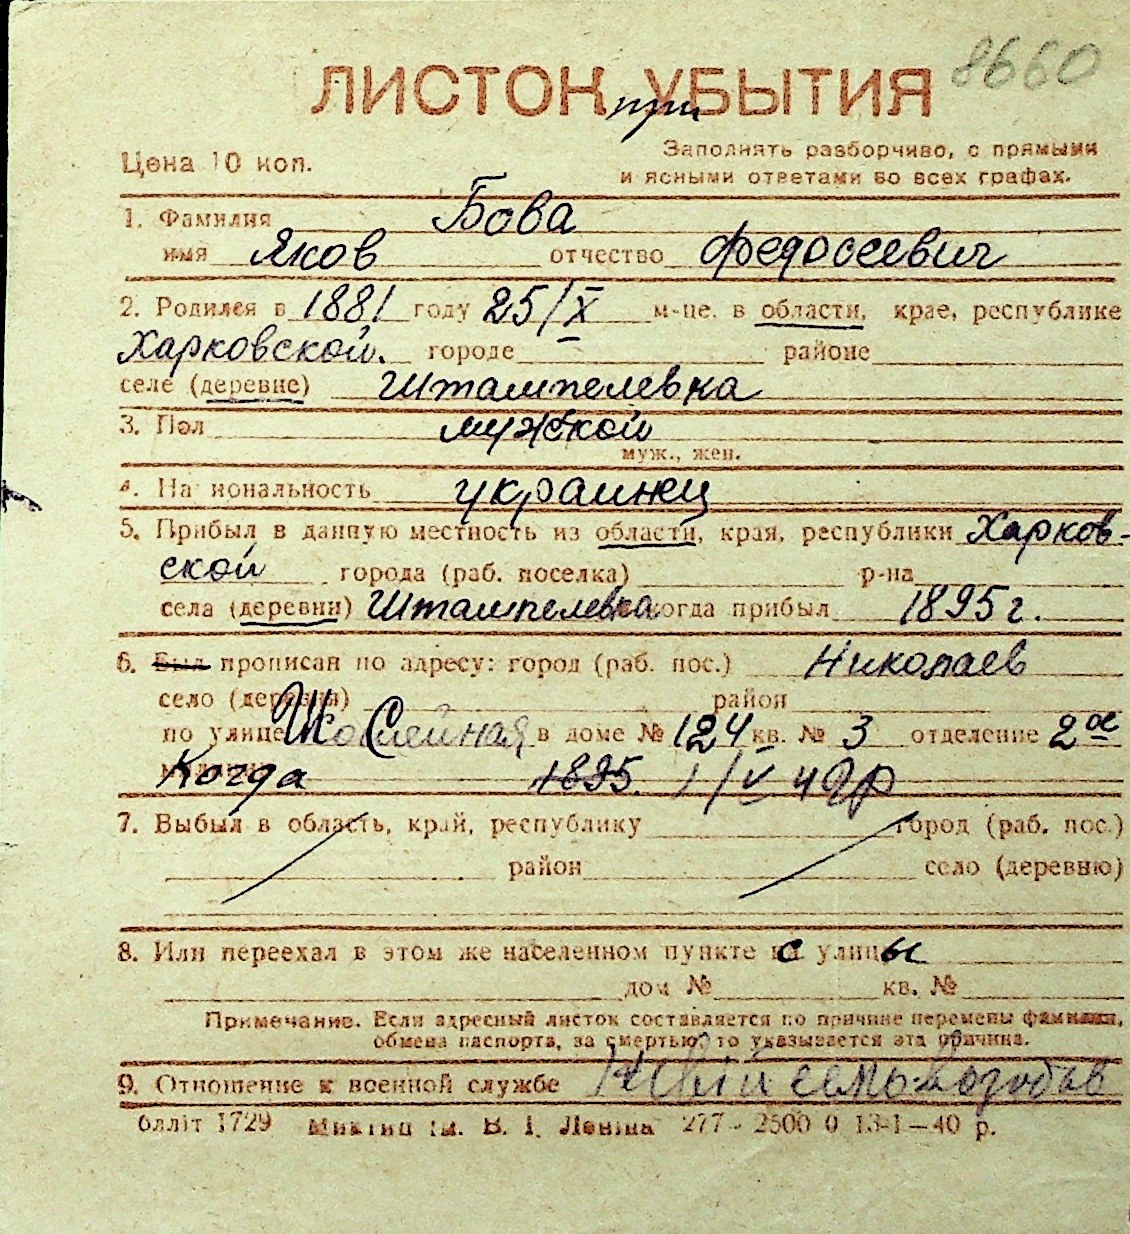 8660
ЛИСТОК при УБЫТИЯ
Цена 10 коп.
Заполнять разборчиво, с прямыми
и ясными ответами во всех графах.
1. Фамилия Бова
имя Яков отчество Федосеевич
2. Родился в 1881 году 25/X м-це. в области, крае, республике
Харковской. городе районе
селе (деревне) Штампелевка
3. Пол мужской
муж., жен.
На иональность украинец
5. Прибыл в данную местность из области, края, республики Харков-
ской города (раб. поселка) р-на
села (деревни) Штампелевка когда прибыл 1895 г.
6. Был прописан по адресу: город (раб. пос.) Николаев
село (деревня) район
по улице в доме № 124 кв. № 3 отделение 2ое
Когда 1895. 1/V 42р
7. Выбыл в область, край, республику город (раб. пос.)
район село (деревню)
8. Или переехал в этом же населенном пункте с улицы
дом № кв. №
Примечание. Если адресный листок составляется по причине перемены фамилии,
обмена паспорта, за смертью, то указывается эта причина.
9. Отношение к военной службе
блліт 1729 ім. В. І. Леніна 277 - 2500 0 13-1—40 р.